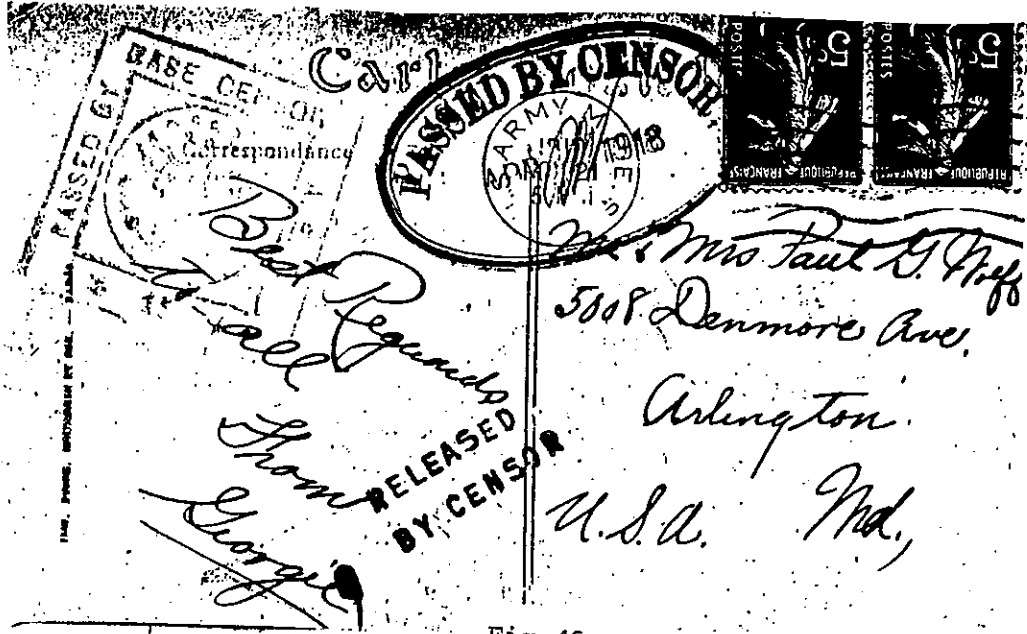 Carte
PASSED BY
BASE CENSOR
Correspondance
PASSED BY CENSOR
ARMY
1918
5c POSTES REPUBLIQUE FRANCAISE
5c POSTES REPUBLIQUE FRANCAISE
Best Regards
To all
From
George
RELEASED
BY CENSOR
Mr & Mrs Paul G. Wolff
5008 Denmore Ave.
Arlington
U.S.A. Md.,